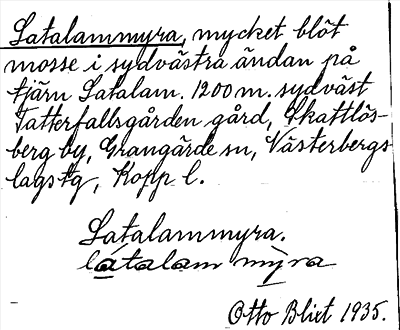 Latalammyra, mycket blöt
mosse i sydvästra ändan på
tjärn Latalam. 1200 m. sydväst
Tatterfallsgården gård, Skattlös-
berg by, Grangärde sn, Västerbergs
lags tg, Kopp l.
Latalammyra.
látalam mỳra
Otto Blixt 1935.